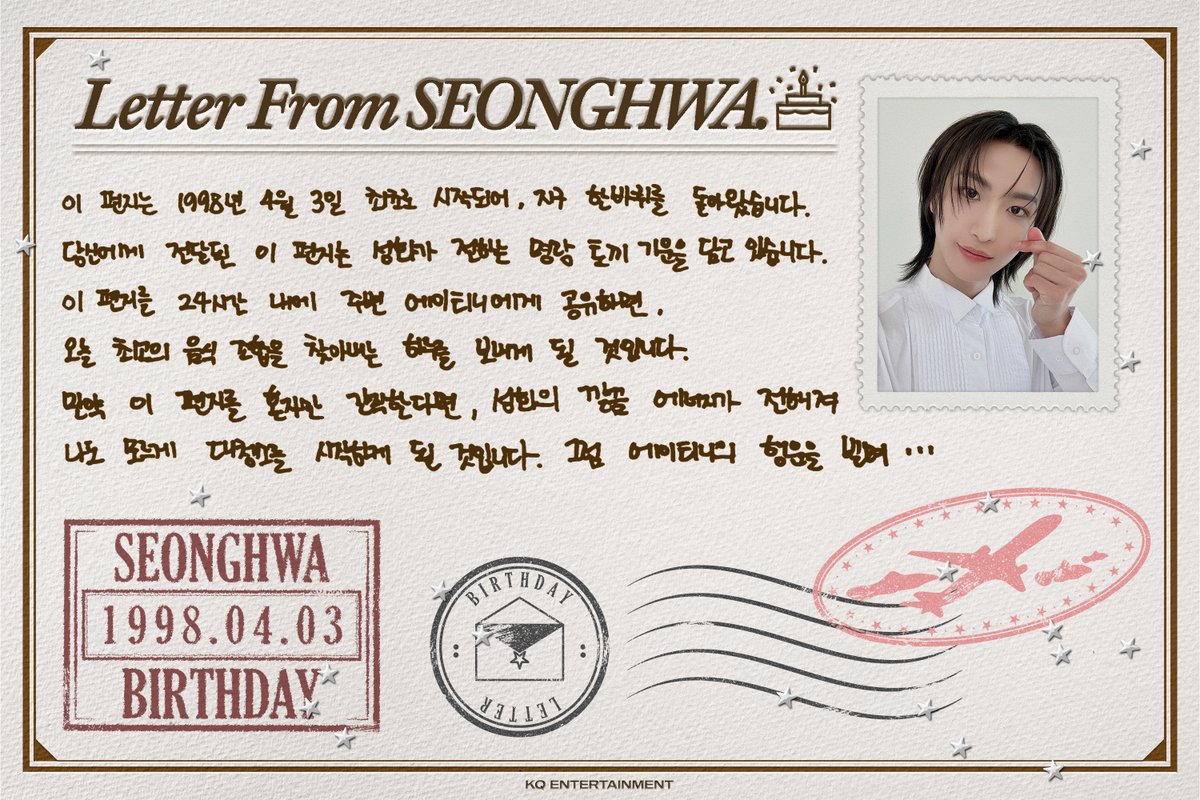 Letter From SEONGHWA.
이 편지는 1998년 4월 3일 최초로 시작되어, 지구 한바퀴를 돌아왔습니다.
당신에게 전달된 이 편지는 성화가 전하는 명랑 토끼 기운을 담고 있습니다.
이 편지를 24시간 내에 주변 에이티니에게 공유하면,
오늘 최고의 음식 조합을 찾아내는 하루를 보내게 될 것입니다.
만약 이 편지를 혼자만 간직한다면, 성화의 깔끔 에너지가 전해져
나도 모르게 대청소를 시작하게 될 것입니다. 그럼 에이티니의 행운을 빌며 ...
SEONGHWA
1998.04.03
BIRTHDAY
BIRTHDAY
LETTER
KQ ENTERTAINMENT